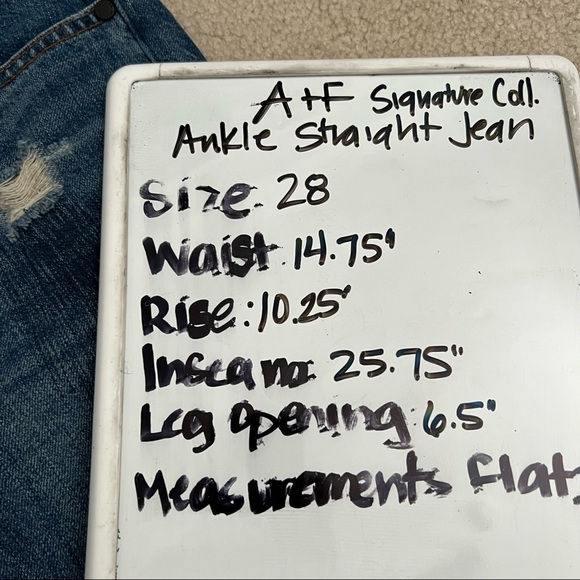 A+F Signature Coll.
Ankle Straight Jean
Size: 28
Waist: 14.75"
Rise: 10.25"
Inseam: 25.75"
Leg opening: 6.5"
Measurements flat